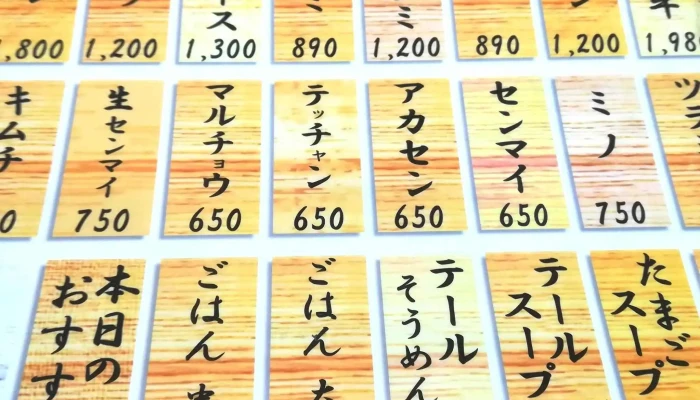 1,800
1,200
ス
1,300
ミ
890
ミ
1,200
890
1,200
キ
キムチ
0
生センマイ
750
マルチョウ
650
テッチャン
650
アカセン
650
センマイ
650
ミノ
750
ツラ
本日の
おすす
ごはん
ごはん
テール
そうめん
テール
スープ
たまご
スープ